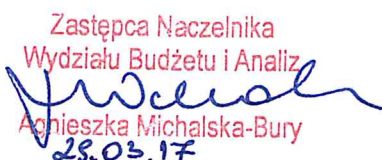 Zastępca Naczelnika
Wydziału Budżetu i Analiz
Agnieszka Michalska-Bury
29.03.17